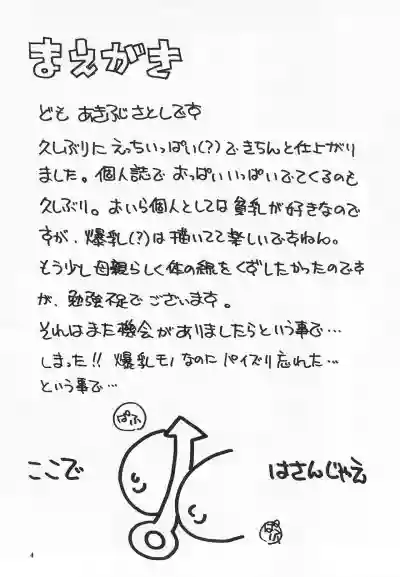 まえがき
ども あきふじさとしです
久しぶりに えっちいっぱい(?)できちんと仕上がり
ました。個人誌で おっぱいいっぱいでてくるのも
久しぶり。おいら個人としては貧乳が好きなので
すが、爆乳(?)は描いてて楽しいですねん。
もう少し母親らしく体の線をくずしたかったのです
が、勉強不足でございます。
それはまた機会がありましたらという事で…
しまった!! 爆乳モノなのに パイズリ忘れた…
という事で…
ぱふ
ここで
はさんじゃえ
4